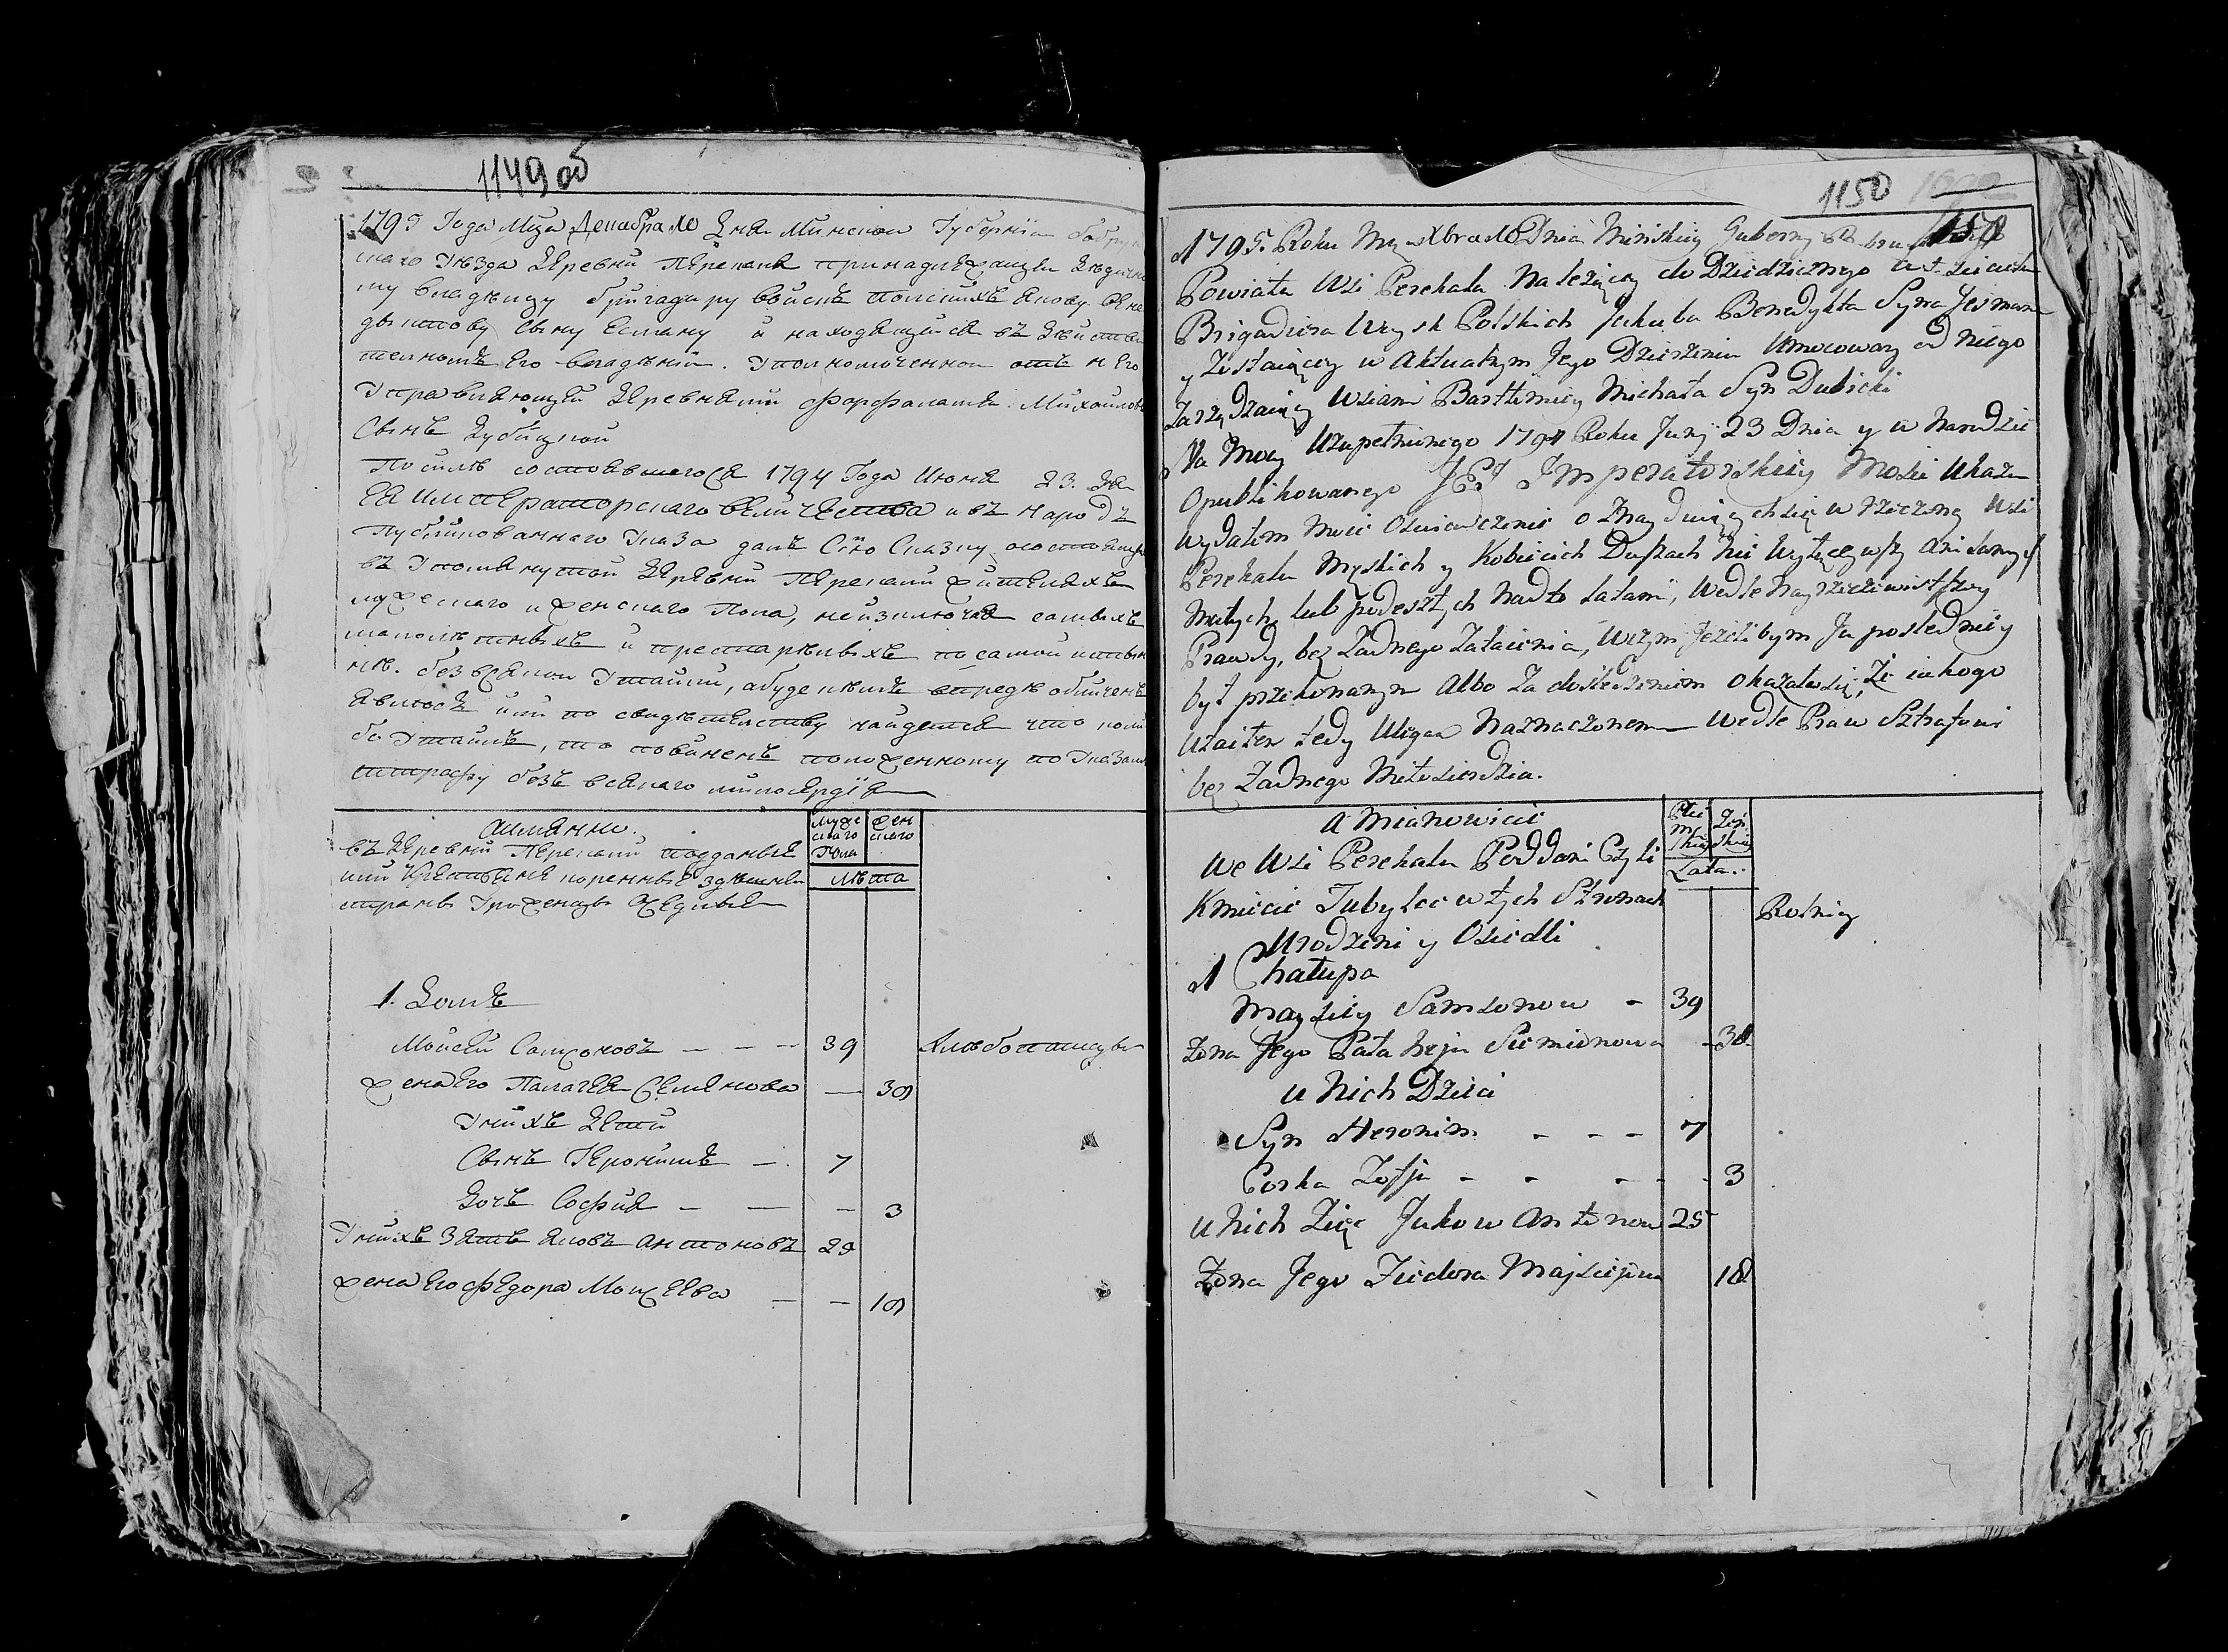 1149 об
1795 Года Мца Декабра 10 Дня Минской Губернїи Бобруй
скаго Уезда Деревни Перекала принадлежащей
му владельцу бригадиру войскъ Польскихъ Якову Бене
дыктову сыну Есману и находящейся въ действи
тельномъ Его владении. Уполномоченной отъ н Его
Управляющей Деревнями Михайловъ
Сынъ Дубицкой
По силе состоявшегося 1794 Года Июня 23. Дня
ЕЯ ИМПЕРаторскаго величества и въ народъ
Публикованнаго Указа далъ Сїю Сказку о состоящих
въ Упомянутой Деревни Перекали жителяхъ
мужескаго и женскаго Пола, не изключая самыхъ
малолетныхъ и престарелыхъ по самой истин
не. без всякой Утайки, а буде кемъ впредь обличенъ
явлюся или по свидетельству найдется что кого ли
бо Утаилъ, то повиненъ положенному по Указам
штрафу безъ всякаго милосердїя
Аимянно.
въ Деревни Перекали подданые
или Крестьяне коренные здешней
страны Уроженцы
муже скаго Пола
жен скаго
лета
1. Домъ
Мойсей Самсоновъ — — — 39 Хлебопашцы
жена Его Палагея Семянова — 38
У нихъ Дети
Сынъ Геронимъ — 7
Дочь София — — — 3
У нихъ Зять Яковъ Антоновъ 25
жена Его Федора Мойсеева — — 18
1150
1795. Roku Mca Xbra 10 Dnia Minskiey Guberny
Powiatu Wsi Perekala Należącey do Dziedzicznego
Brigadiera Woysk Polskich Jakuba Benedykta Syna Jesmana
y Zostaiącey w Aktualnym Jego Dzierżeniu Umocowany od niego
Zarządzaiący Wsiami Bartłomiey Michała Syn Dubicki
Na Mocy Uzupełnionego 1794 Roku Junj 23 Dnia y w Narodzie
Opublikowanego JEJ Imperatorskiey Mości Ukazu
Wydałem Moie Oswiadczenie o Znayduiących się w rzeczoney Wsi
Perekalu Męskich y Kobiecich Duszach nie Wyłączywszy Ani samych
Małych, lub podeszłych Nadto Latami, Wedle Nayrzetelnieyszey
Prawdy, bez Żadnego Zataienia, Wczym Jeżelibym Ja posledniey
był przekonanym Albo Za doslecżeniem okazałosię, Że iakogo
Utaiłem tedy Ulegam Naznaczonemu Wedle Praw Sztrafowi
bez Żadnego Miłosierdzia.
A Mianowicie
We Wsi Perekalu Poddani Czyli
Kmiecie Tubylce w tych Stronach
Urodzeni y Osiedli
Płci Mę skiey
Żeń skiey
Lata.
Rolnicy
1 Chałupa
Mayziey Samsonow - 39
Zona Jego Pałaheja Siemionowa - 38
u Nich Dzieci
Syn Heronim - - - 7
Corka Zofja - - - - 3
u Nich Zięc Jakow Antonow 25
Żona Jego Fiedora Majsiejowa 18